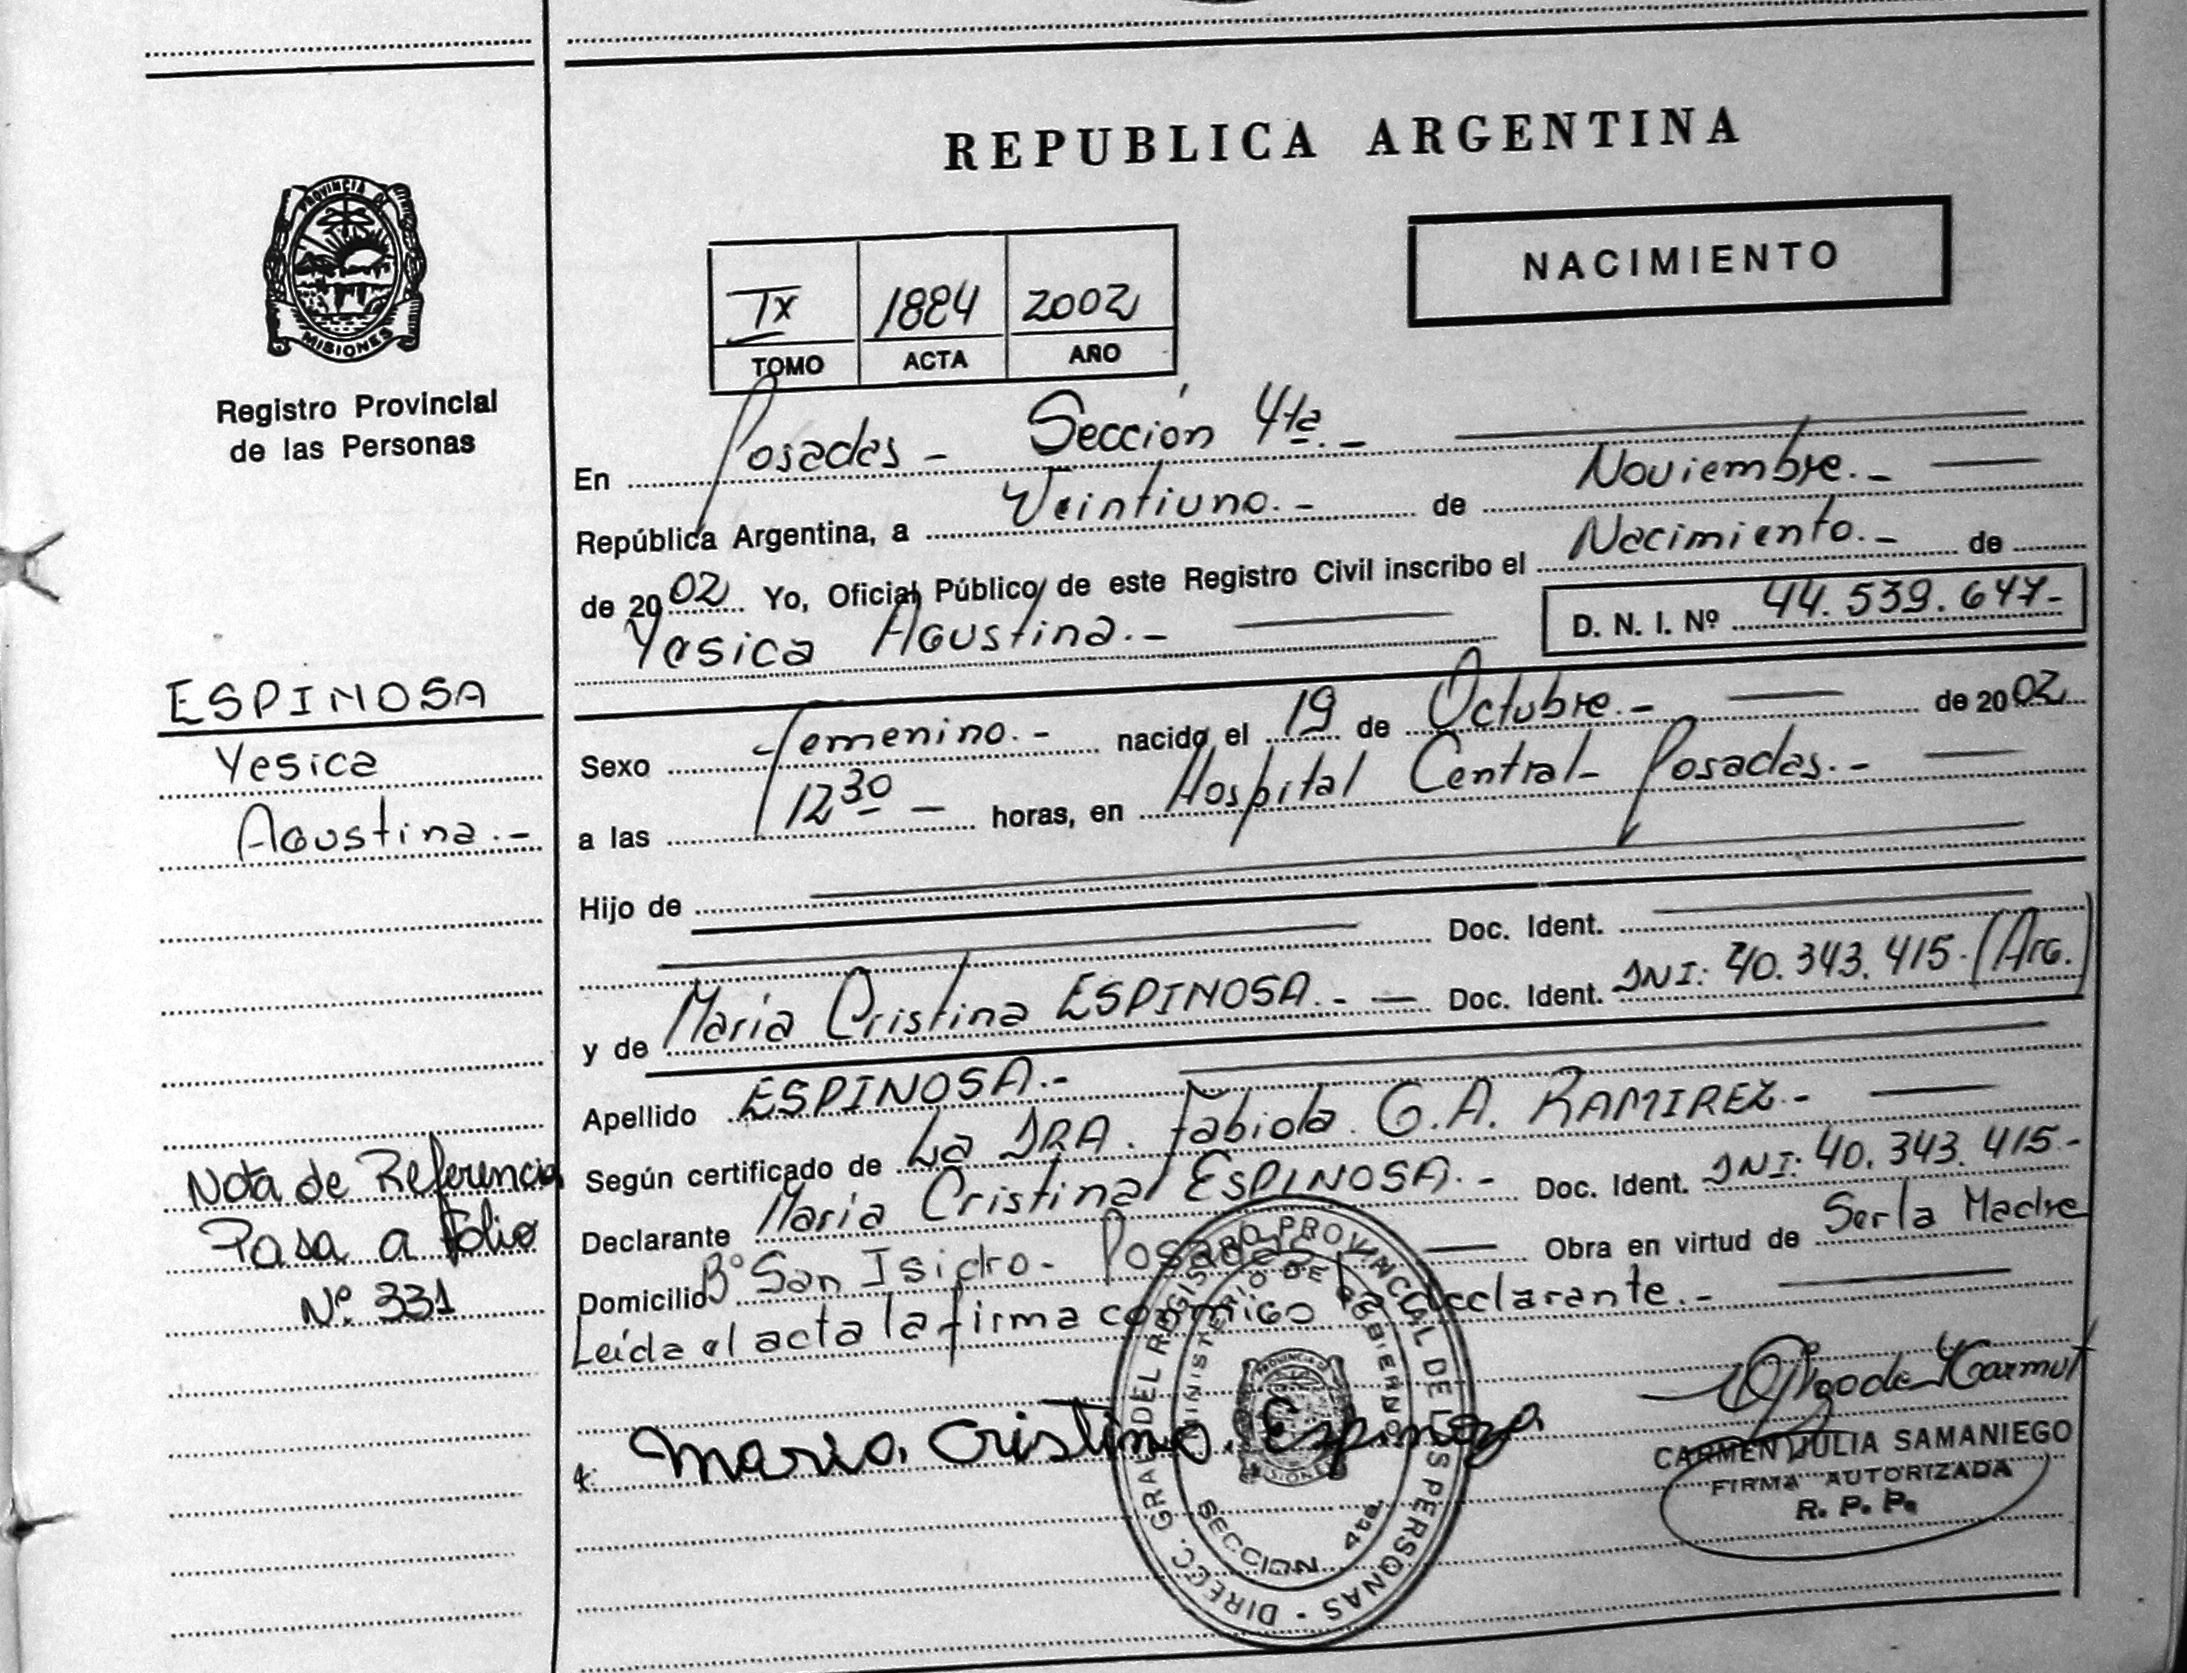 PROVINCIA DE
MISIONES
Registro Provincial
de las Personas
ESPINOSA
Yesica
Agustina.-
Nota de Referencia
Pasa a folio
Nº 331
REPUBLICA ARGENTINA
NACIMIENTO
IX 1884 2002
TOMO ACTA AÑO
En Posadas - Sección 4ta.-
República Argentina, a Veintiuno.- de Noviembre.-
de 2002 Yo, Oficial Público de este Registro Civil inscribo el Nacimiento.- de
Yesica Agustina.- D. N. I. Nº 44.539.647-
Sexo femenino.- nacido el 19 de Octubre.- de 2002
a las 12 30 - horas, en Hospital Central- Posadas.-
Hijo de
Doc. Ident.
y de María Cristina ESPINOSA.- Doc. Ident. DNI: 40.343.415.(Arg.)
Apellido ESPINOSA.-
Según certificado de La DRA. Fabiola G.A. RAMIREZ.-
Declarante María Cristina ESPINOSA.- Doc. Ident. DNI: 40.343.415.-
Domicilio Bº San Isidro- Posadas Obra en virtud de Ser la Madre
Leída el acta la firma conmigo la declarante.-
Maria Cristina Espinoza
CARMEN JULIA SAMANIEGO
FIRMA AUTORIZADA
R. P. P.
DIRECC. GRAL DEL REGISTRO PROVINCIAL DE LAS PERSONAS -
MINISTERIO DE GOBIERNO
SECCION 4ta.
PROVINCIA DE
MISIONES